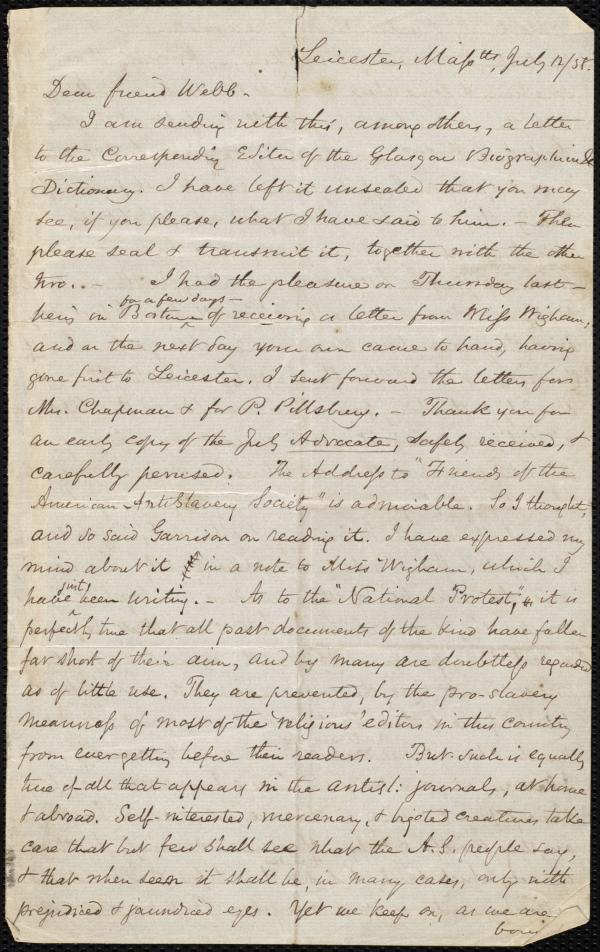 Leicester, Massts, July 12/58.
Dear friend Webb -
I am sending with this, among others, a letter
to the Corresponding Editor of the Glasgow Biographical
Dictionary. I have left it unsealed that you may
see, if you please, what I have said to him. - Then
please seal & transmit it, together with the other
two. - I had the pleasure on Thursday last -
for a few days -
being in Boston of receiving a letter from Miss Wigham,
and on the next day your own came to hand, having
gone first to Leicester. I sent forward the letters for
Mrs. Chapman & for P. Pillsbury. - Thank you for
an early copy of the July Advocate, safely received, &
carefully perused. The Address to "Friends of the
American Anti Slavery Society" is admirable. So I thought,
and so said Garrison on reading it. I have expressed my
mind about it in a note to Miss Wigham, which I
just
have been writing. - As to the "National Protest," it is
perfectly true that all past documents of the kind have fallen
far short of their aim, and by many are doubtless regarded
as of little use. They are prevented, by the pro-slavery
meanness of most of the 'religious' editors in this country
from ever getting before their readers. But such is equally
true of all that appears in the antisl: journals, at home
& abroad. Self-interested, mercenary, & bigoted creatures take
care that but few shall see what the A.S. people say,
& that when seen it shall be, in many cases, only with
prejudiced & jaundiced eyes. Yet we keep on, as we are